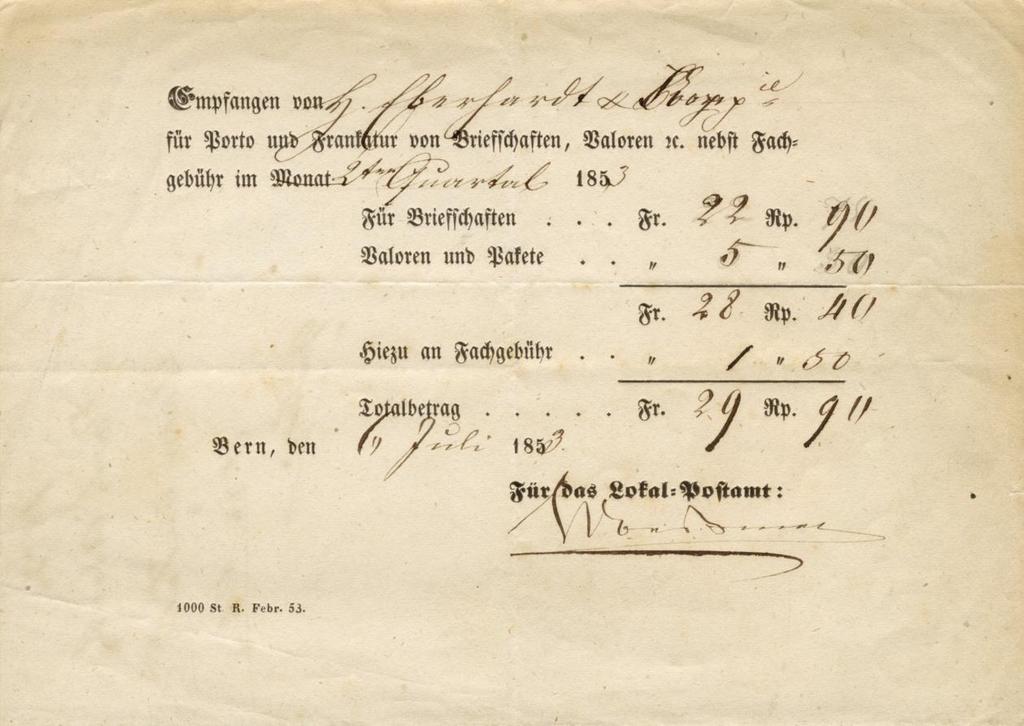 Empfangen von H. Eberhardt &
für Porto und Frankatur von Briefschaften, Valoren ꝛc. nebst Fach-
gebühr im Monat 2ten Quartal 1853
Für Briefschaften . . . Fr. 22 Rp. 90
Valoren und Pakete . . " 5 " 50
Fr. 28 Rp. 40
Hiezu an Fachgebühr . . " 1 " 50
Totalbetrag . . . . . Fr. 29 Rp. 90
Bern, den Juli 1853.
Für das Lokal-Postamt:
1000 St. R. Febr. 53.